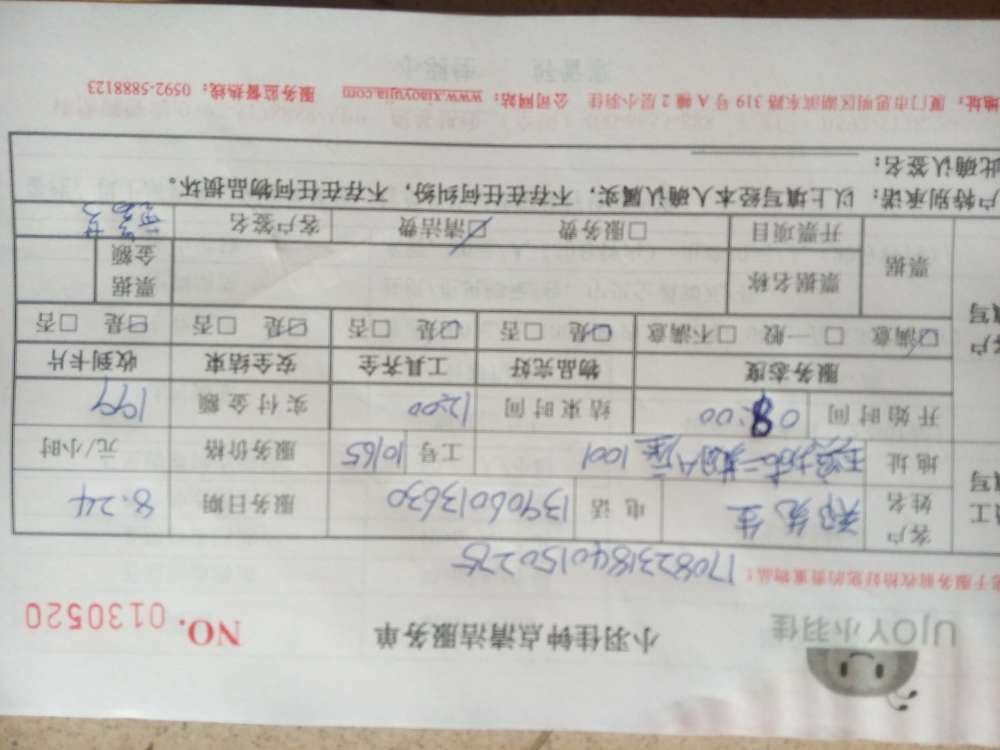 UJOY小羽佳 小羽佳钟点清洁服务单 NO. 0130520
于服务前收拾好您的贵重物品： 170823184015022
客户姓名 郑先生 电话 13906013630 服务日期 8.24
地址 二期A座 1001 工号 10165 服务价格 元/小时
开始时间 08:00 结束时间 12:00 实付金额 199
服务态度 物品完好 工具齐全 安全结束 收到卡片
☑满意 □一般 □不满意 ☑是 □否 ☑是 □否 ☑是 □否 ☑是 □否
票据 票据名称 票据金额
开票项目 □服务费 ☑清洁费 客户签名
户特别承诺：以上填写经本人确认属实，不存在任何纠纷，不存在任何物品损坏。
此确认签名：
地址：厦门市思明区湖滨东路 319 号 A 幢 2 层小羽佳 公司网站：www.xiaoyujia.com 服务监督热线：0592-5888123